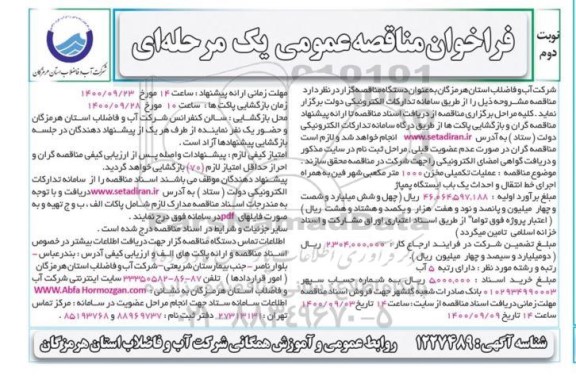 نوبت
دوم
فراخوان مناقصه عمومی یک مرحله‌ای
شرکت آب و فاضلاب استان هرمزگان
شرکت آب و فاضلاب استان هرمزگان به عنوان دستگاه مناقصه گزار در نظر دارد
مناقصه مشروحه ذیل را از طریق سامانه تدارکات الکترونیکی دولت برگزار
نماید. کلیه مراحل برگزاری مناقصه از دریافت اسناد مناقصه تا ارائه پیشنهاد
مناقصه گران و بازگشایی پاکت ها از طریق درگاه سامانه تدارکات الکترونیکی
دولت ( ستاد ) به آدرس www.setadiran.ir انجام خواهد شد و لازم است
مناقصه گران در صورت عدم عضویت قبلی، مراحل ثبت نام در سایت مذکور
و دریافت گواهی امضای الکترونیکی را جهت شرکت در مناقصه محقق سازند.
موضوع مناقصه : عملیات تکمیلی مخزن ۱۰۰۰ متر مکعبی شهر فین به همراه
اجرای خط انتقال و احداث یک باب ایستگاه پمپاژ
مبلغ برآورد اولیه : ۴۶،۰۶۴،۵۹۷،۱۸۸ ریال (چهل و شش میلیارد و شصت
و چهار میلیون و پانصد و نود و هفت هزار و یکصد و هشتاد و هشت ریال )
( اعتبار پروژه فوق تواما" از طریق اسناد اعتباری اوراق مشارکت و اسناد
خزانه اسلامی تامین میگردد )
مبلغ تضمین شرکت در فرآیند ارجاع کار : ۲،۳۰۴،۰۰۰،۰۰۰ ریال
(دومیلیارد و سیصد و چهار میلیون ریال)
رتبه و رشته مورد نظر : دارای رتبه ۵ آب
مبلغ خرید اسناد : ۵،۰۰۰،۰۰۰ ریال به شماره حساب سپهر
۰۱۰۲۹۳۴۹۹۰۰۰۳ بانک صادرات شعبه گلشهر جهت فروش اسناد مناقصه
مهلت زمانی دریافت اسناد مناقصه از سایت : ساعت ۱۴ تاریخ ۱۴۰۰/۰۹/۰۳
ساعت ۱۴ تاریخ ۱۴۰۰/۰۹/۰۹
مهلت زمانی ارائه پیشنهاد : ساعت ۱۴ مورخ ۱۴۰۰/۰۹/۲۳
زمان بازگشایی پاکت ها : ساعت ۱۰ مورخ ۱۴۰۰/۰۹/۲۸
محل بازگشایی : سالن کنفرانس شرکت آب و فاضلاب استان هرمزگان
و حضور یک نفر نماینده از طرف هر یک از پیشنهاد دهندگان در جلسه
بازگشایی پیشنهادها آزاد است .
امتیاز کیفی لازم : پیشنهادات واصله پس از ارزیابی کیفی مناقصه گران و
احراز حداقل امتیاز لازم (۷۰) بازگشایی خواهد گردید.
پیشنهاد دهندگان موظف می باشند اسناد مناقصه را از سامانه تدارکات
الکترونیکی دولت ( ستاد ) به آدرس www.setadiran.ir دریافت و با توجه
به مندرجات اسناد مناقصه مدارک لازم شامل پاکات الف ، ب و ج تهیه و به
صورت فایلهای pdf در سامانه فوق درج نمایند .
سایر جزئیات و شرایط در اسناد مناقصه درج شده است .
اطلاعات تماس دستگاه مناقصه گزار جهت دریافت اطلاعات بیشتر در خصوص
اسناد مناقصه و ارائه پاکت های الف و ارزیابی کیفی آدرس : بندرعباس -
بلوار ناصر - جنب بیمارستان شریعتی- شرکت آب و فاضلاب استان هرمزگان
( امور قراردادها ) تلفن ۸۷-۸۶-۳۳۳۵۰۵۸۲ سایت اینترنتی شرکت آب
و فاضلاب استان هرمزگان به نشانی : WWW.Abfa Hormozgan.com
اطلاعات سامانه ستاد جهت انجام مراحل عضویت در سامانه : مرکز تماس
تهران : ۲۷۳۱۳۱۳۱ دفتر ثبت نام : ۸۸۹۶۹۷۳۷ و ۸۵۱۹۳۷۶۸ .
شناسه آگهی : ۱۲۲۷۴۸۹
روابط عمومی و آموزش همگانی شرکت آب و فاضلاب استان هرمزگان